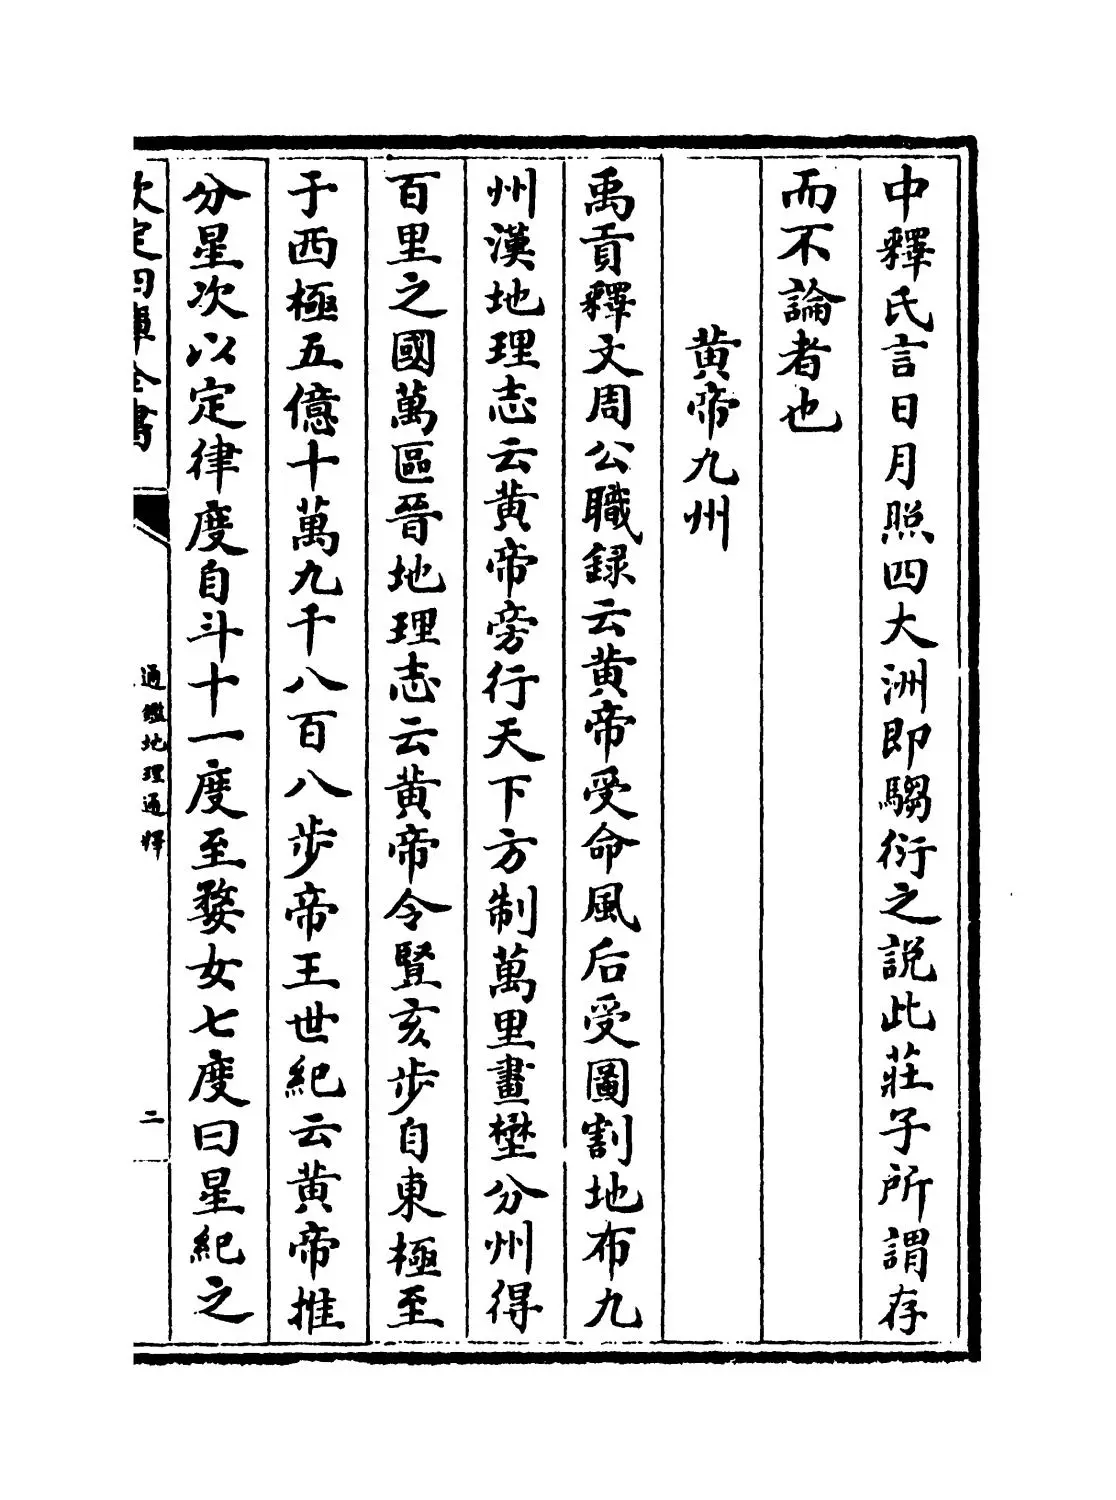 中釋氏言日月照四大洲即騶衍之説此莊子所謂存
而不論者也
黄帝九州
禹貢釋文周公職録云黄帝受命風后受圖割地布九
州漢地理志云黄帝旁行天下方制萬里畫壄分州得
百里之國萬區晉地理志云黄帝令豎亥步自東極至
于西極五億十萬九千八百八步帝王世紀云黄帝推
分星次以定律度自斗十一度至婺女七度曰星紀之
欽定四庫全書
通鑑地理通釋
二